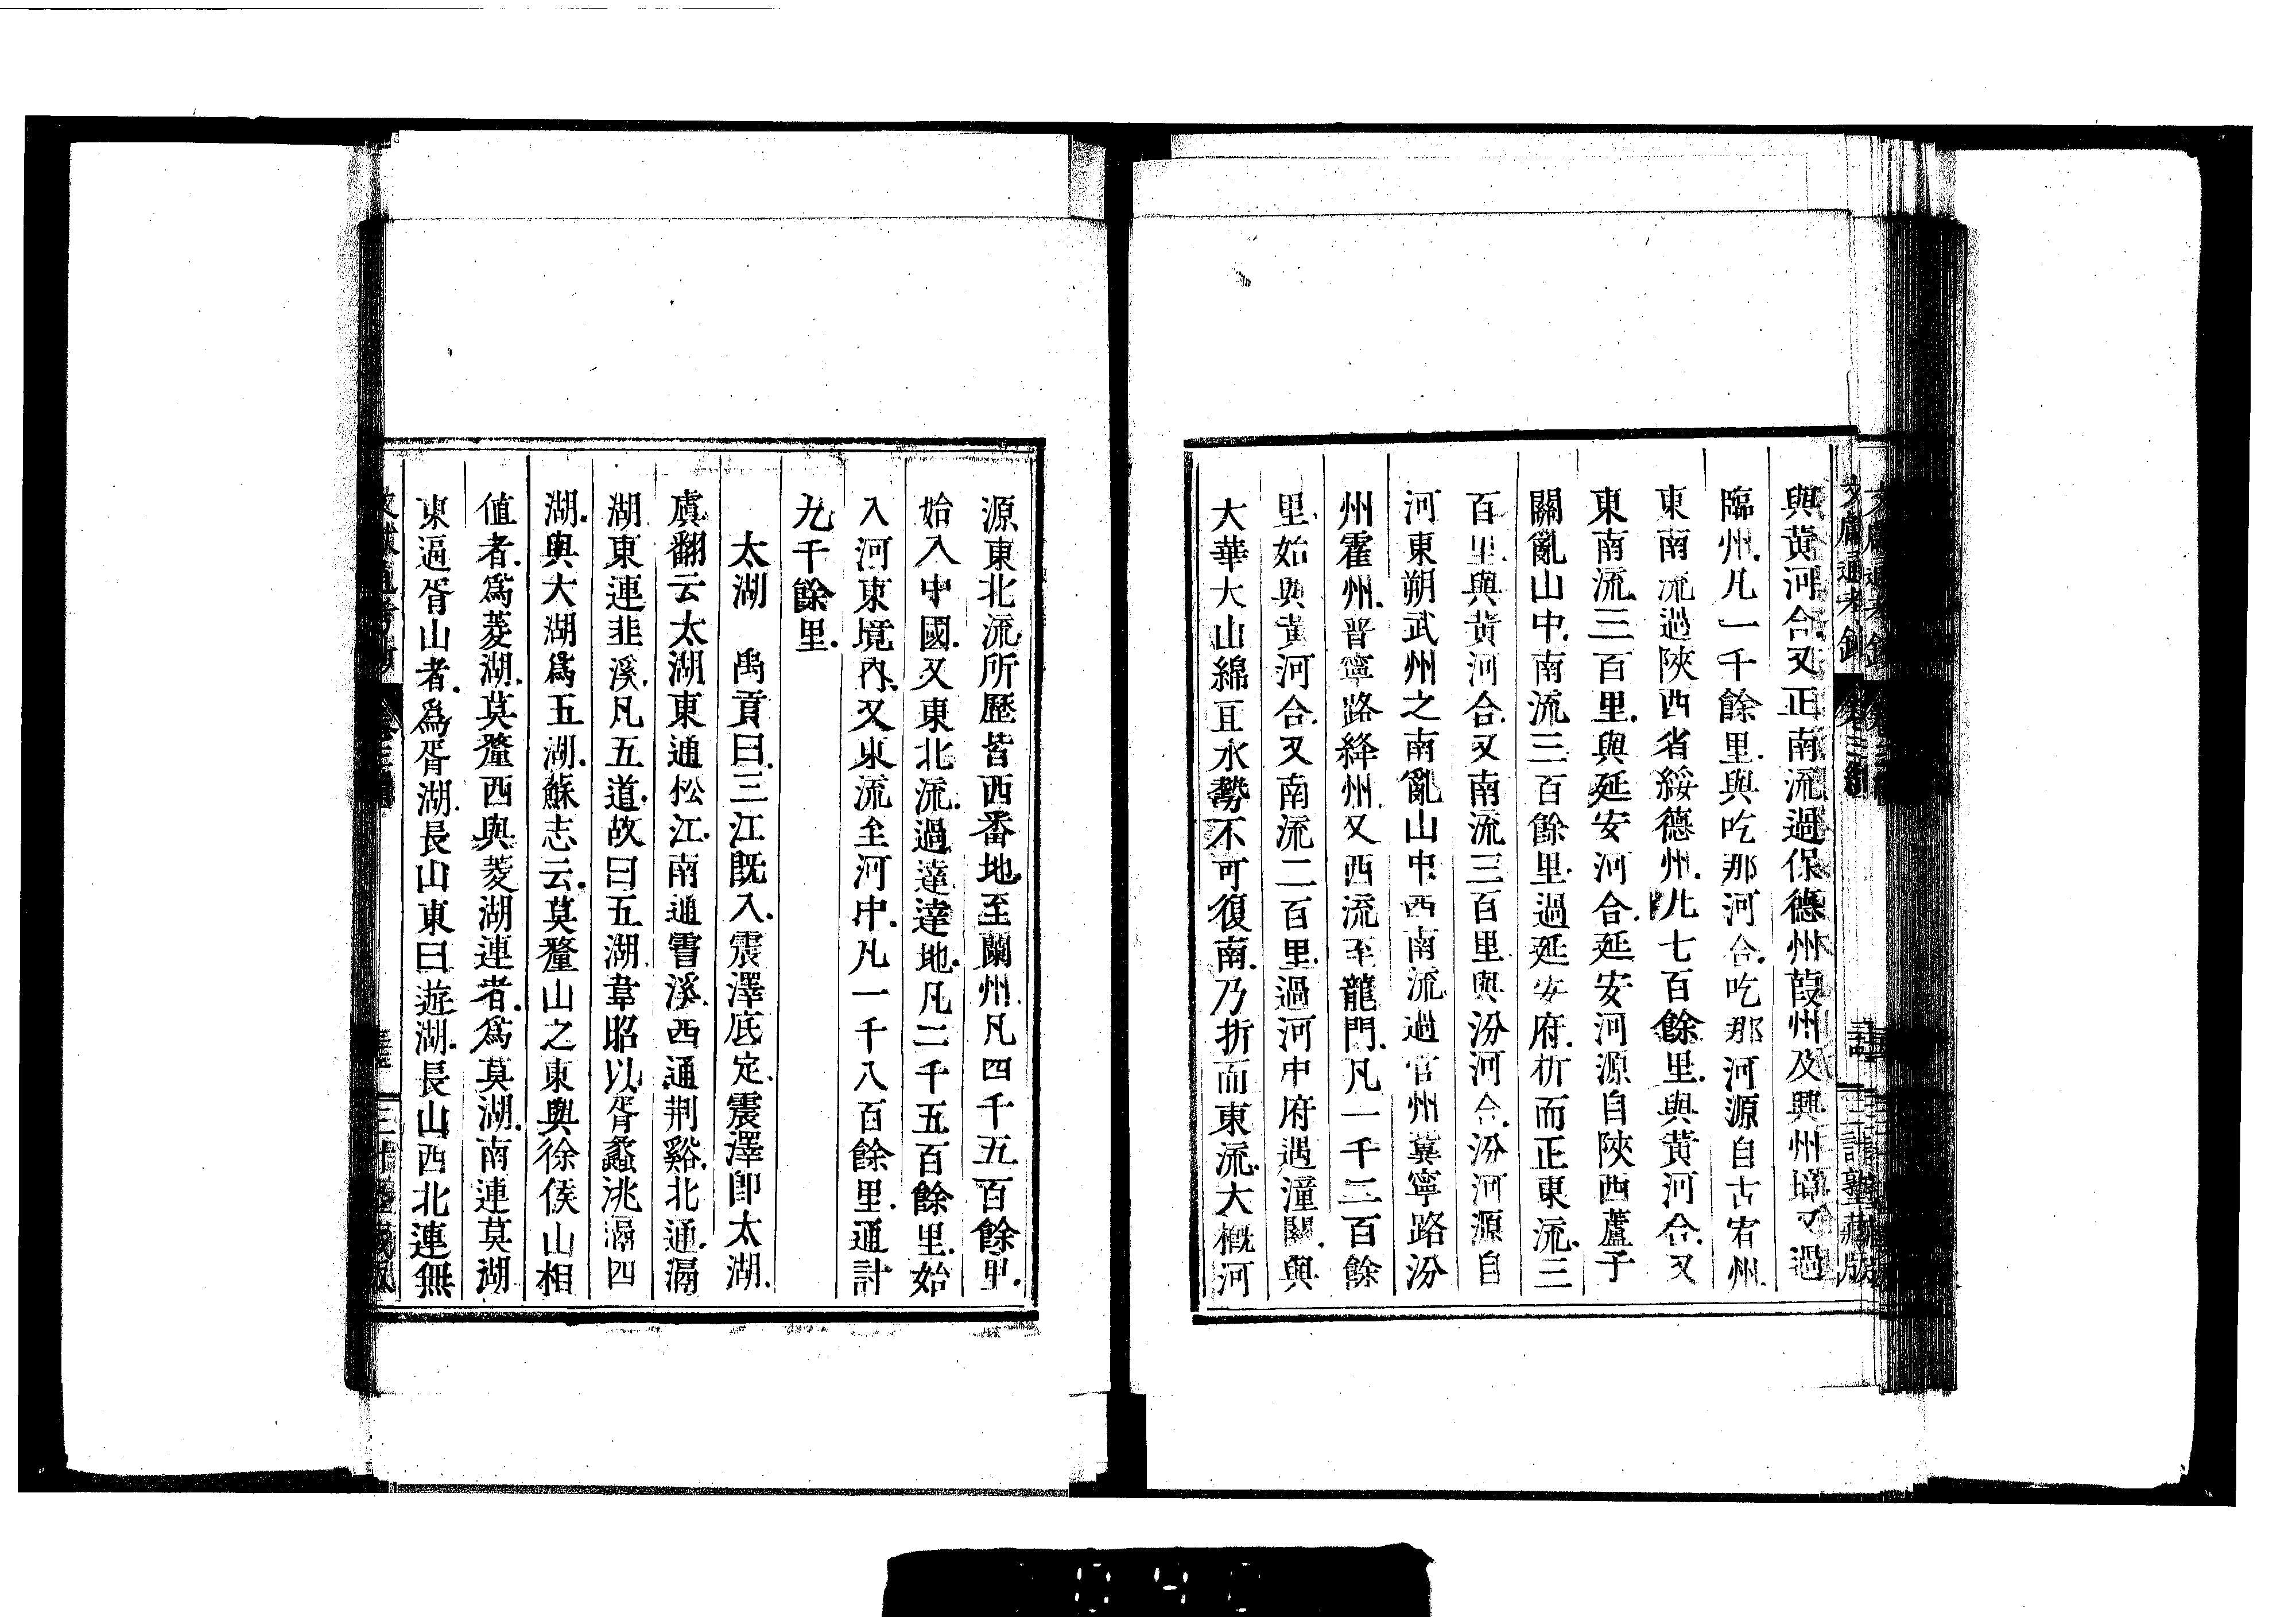 與黃河合又正南流過保德州葭州及興州境又過
臨州凡一千餘里與吃那河合吃那河源自古宥州
東南流過陝西省綏德州凡七百餘里與黃河合又
東南流三百里與延安河合延安河源自陝西蘆子
關亂山中南流三百餘里過延安府折而正東流三
百里與黃河合又南流三百里與汾河合汾河源自
河東朔武州之南亂山中西南流過官州冀寧路汾
州霍州晋寧路絳州又西流至龍門凡一千二百餘
里始與黃河合又南流二百里過河中府遇潼關與
大華大山綿亘水勢不可復南乃折而東流大槪河
源東北流所歷皆西番地至蘭州凡四千五百餘里
始入中國又東北流過達達地凡二千五百餘里始
入河東境內又東流至河中凡一千八百餘里通計
九千餘里
太湖 禹貢曰三江既入震澤底定震澤即太湖
虞翻云太湖東通松江南通霅溪西通荆谿北通滆
湖東連韭溪凡五道故曰五湖韋昭以胥蠡洮滆四
湖與大湖爲五湖蘇志云莫釐山之東與徐侯山相
値者爲菱湖莫釐西與菱湖連者爲莫湖南連莫湖
東逼胥山者爲胥湖長山東曰遊湖長山西北連無